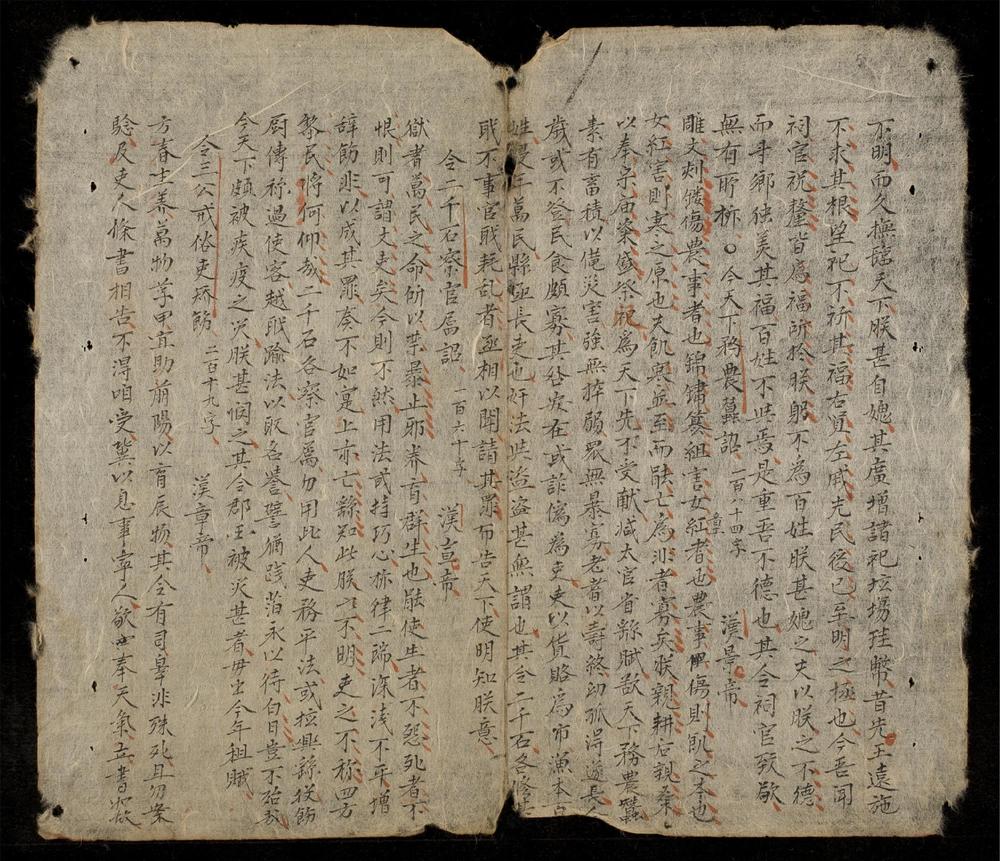 不明而久撫臨天下朕甚自媿其廣增諸祀坛塲珪幣昔先王遠施
不求其根望祀不祈其福右賢左戚先民後己至明之極也今吾聞
祠官祝釐皆歸福於朕躬不為百姓朕甚媿之夫以朕之不德
而專鄉独美其福百姓不與焉是重吾不德也其令祠官致敬
無有所祈 ○ 令天下務農蠶詔 一百八十四字 章 漢景帝
雕文刻鏤傷農事者也錦繡纂組害女紅者也農事傷則飢之本也
女紅害則寒之原也夫飢寒並至而能亡為非者寡矣朕親耕后親桑
以奉宗庙粢盛祭祀為天下先不受献减太官省繇賦欲天下務農蠶
素有畜積以俻災害強無攘弱眾無暴寡老耆以壽終幼孤得遂長今
歲或不登民食頗寡其咎安在或詐偽為吏吏以货賂為市漁本百
姓侵牟萬民縣丞長吏也奸法與盗盗甚無謂也其令二千石各修其
職不事官職耗乱者丞相以聞請其罪布告天下使明知朕意
令二千石察官属詔 一百六十字 漢宣帝
獄者萬民之命所以禁暴止邪养育群生也能使生者不怨死者不
恨則可謂文吏矣今則不然用法或持巧心析律二端深淺不平增
辞飾非以成其罪奏不如寔上亦亡繇知此朕之不明吏之不称四方
黎民將何仰哉二千石各察官属勿用此人吏務平法或擅興繇役飾
厨傳称過使客越職踰法以取名誉譬猶践薄氷以待白日豈不殆哉
今天下頗被疾疫之灾朕甚憫之其令郡国被灾甚者毋出今年租賦
令三公戒俗吏矫飾 二百十九字 漢章帝
方春生养萬物孚甲宜助萠陽以育辰物其令有司辠非殊死且勿案
驗及吏人條書相告不得听受冀以息事寧人敬奉天氣立書如故